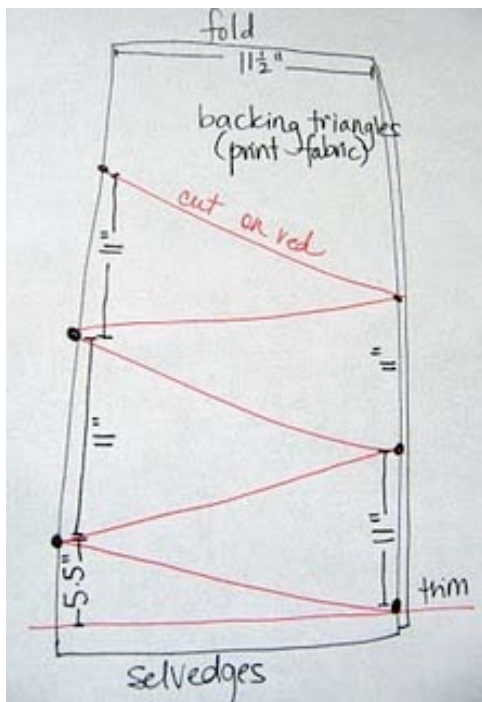 fold
11½"
backing triangles
(print fabric)
cut on red
11"
11"
11"
11"
5.5"
trim
selvedges